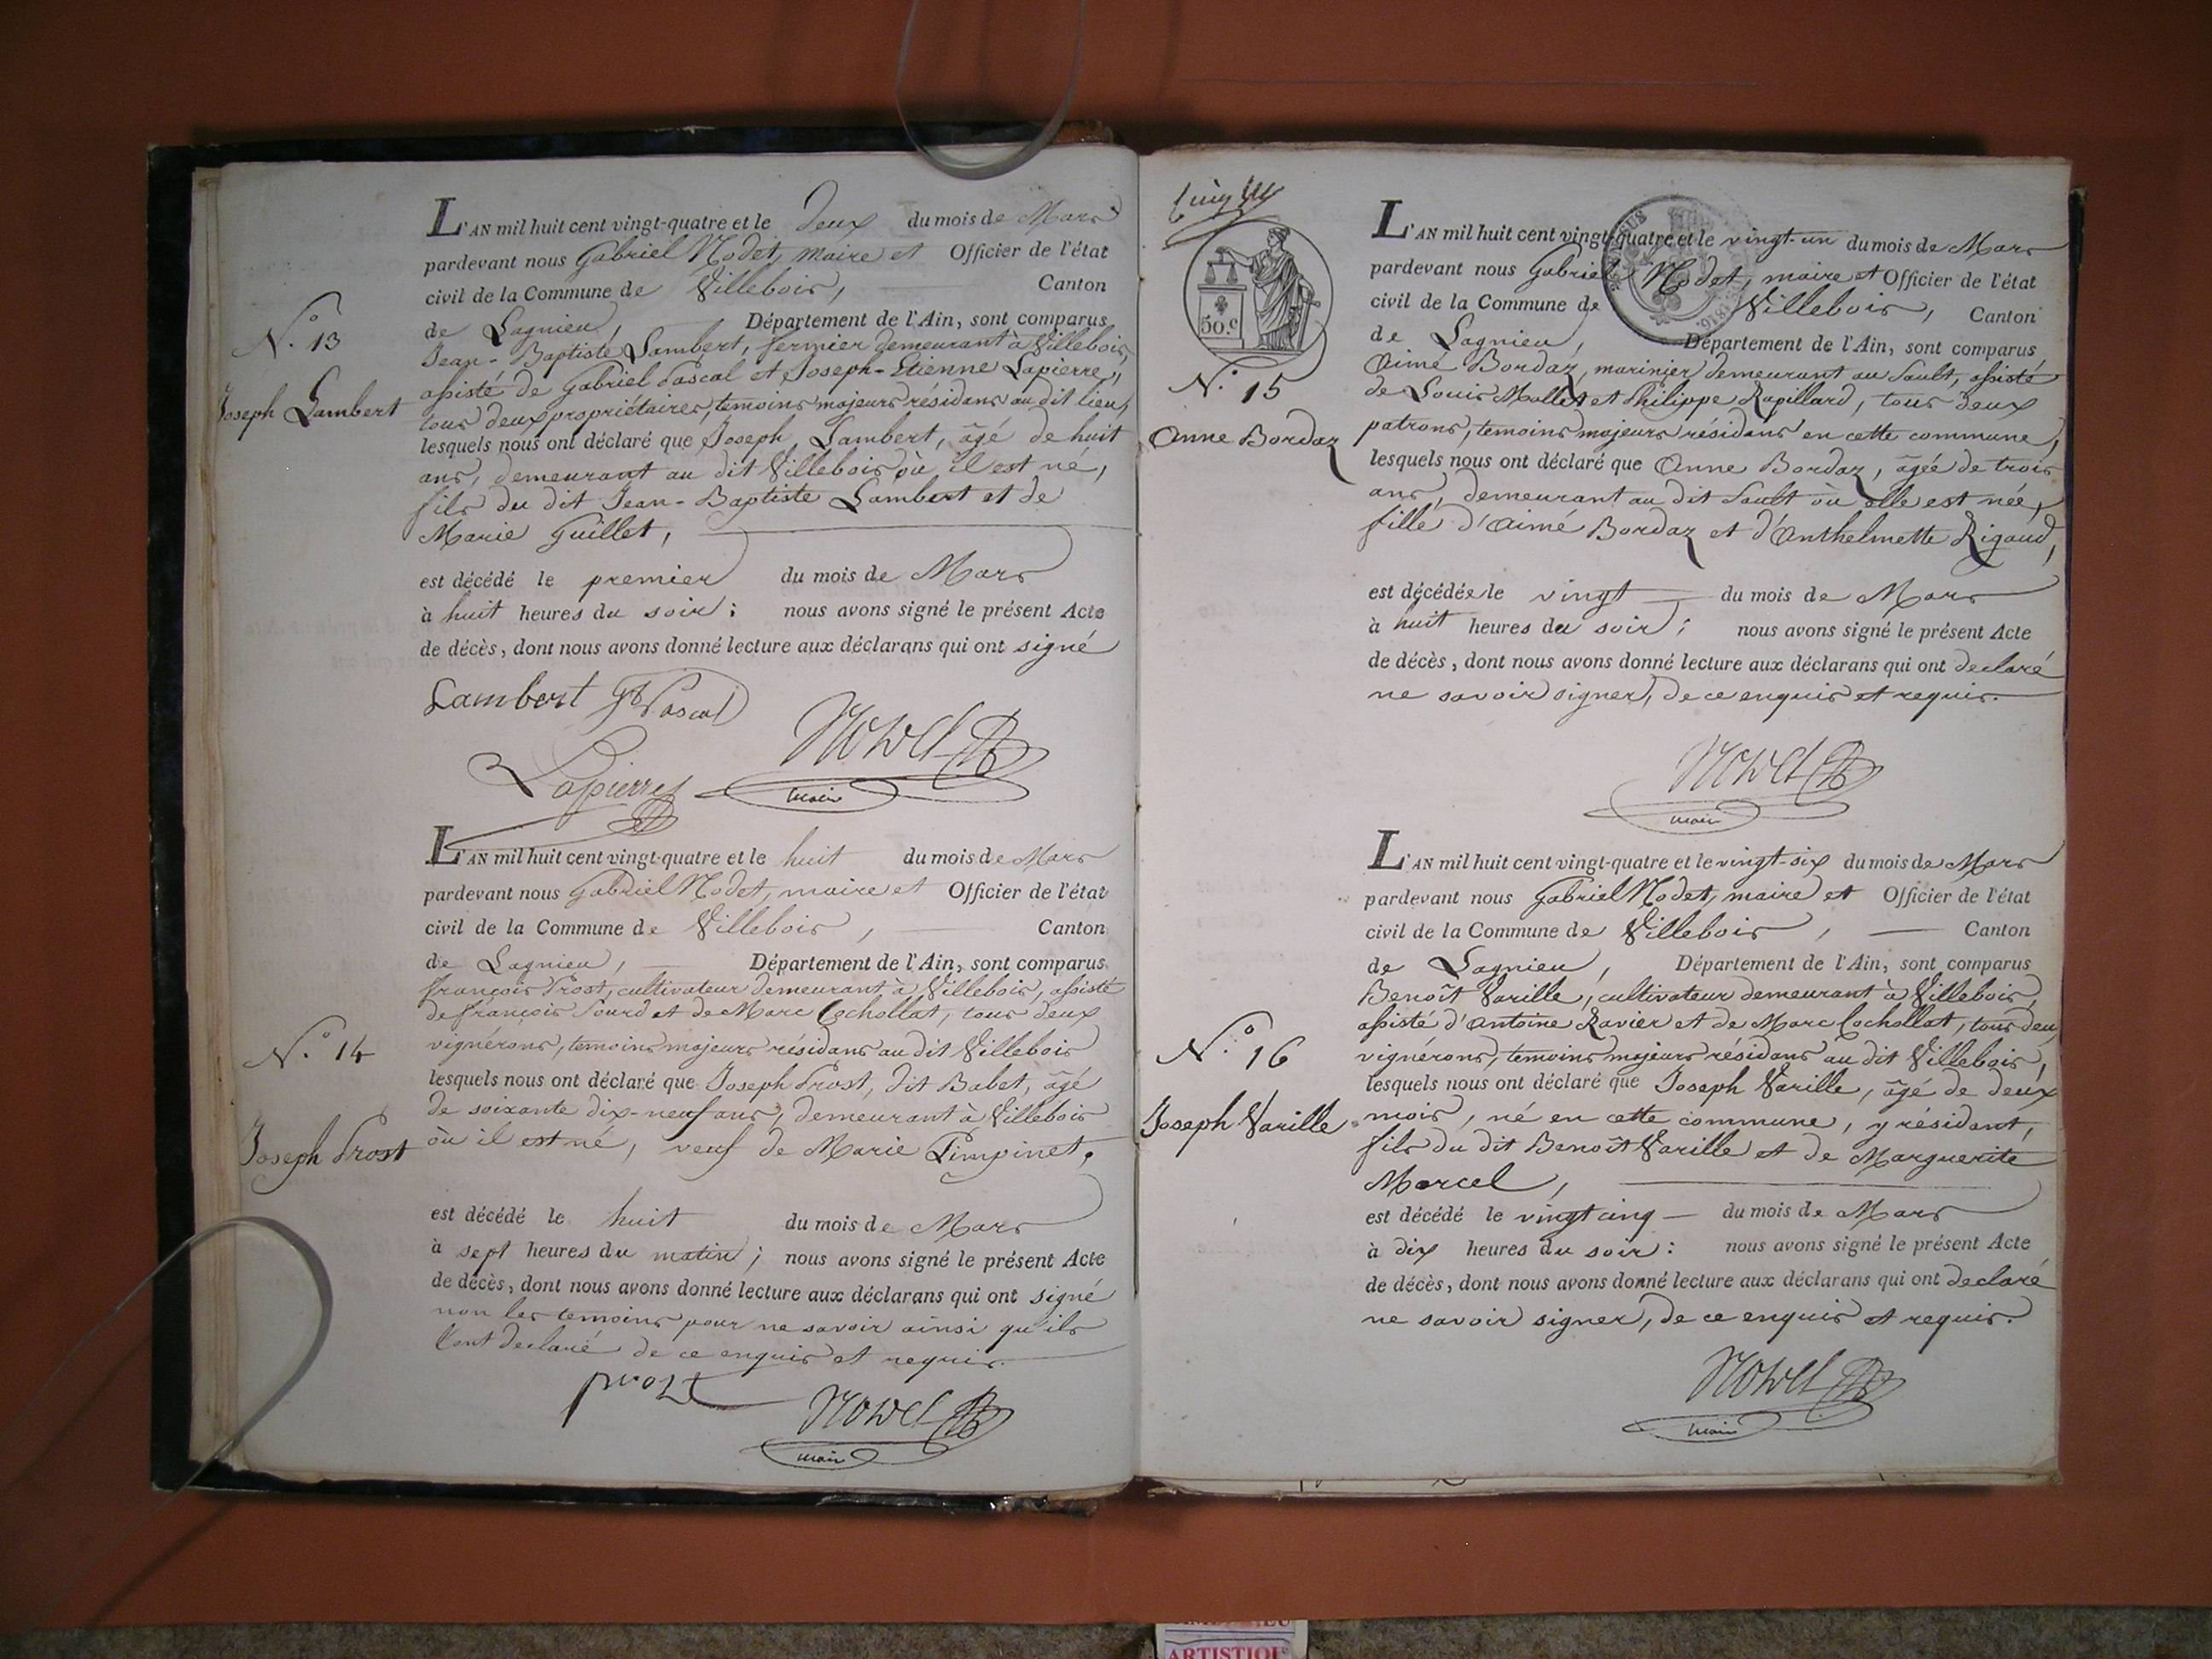 L'AN mil huit cent vingt-quatre et le deux du mois de Mars
pardevant nous Gabriel Nodet, maire et Officier de l'état
civil de la Commune de Villebois, Canton
de Lagnieu, Département de l'Ain, sont comparus
Jean-Baptiste Lambert, fermier demeurant à Villebois,
assisté de Gabriel Pascal et Joseph-Etienne Lapierre,
tous deux propriétaires, temoins majeurs résidans au dit lieu,
lesquels nous ont déclaré que Joseph Lambert, âgé de huit
ans, demeurant au dit Villebois où il est né,
fils du dit Jean-Baptiste Lambert et de
Marie Guillet,
est décédé le premier du mois de Mars
à huit heures du soir; nous avons signé le présent Acte
de décès, dont nous avons donné lecture aux déclarans qui ont signé
N.° 13
Joseph Lambert
Lambert Gb Pascal
Nodet
Lapierre
maire
L'AN mil huit cent vingt-quatre et le huit du mois de Mars
pardevant nous Gabriel Nodet, maire et Officier de l'état
civil de la Commune de Villebois, Canton
de Lagnieu, Département de l'Ain, sont comparus
François Prost, cultivateur demeurant à Villebois, assisté
de François Sourd et de Marc Cochollat, tous deux
vignérons, temoins majeurs résidans au dit Villebois
lesquels nous ont déclaré que Joseph Prost, dit Babet, âgé
de soixante dix-neuf ans, demeurant à Villebois
où il est né, veuf de Marie Pimpinet,
est décédé le huit du mois de Mars
à sept heures du matin; nous avons signé le présent Acte
de décès, dont nous avons donné lecture aux déclarans qui ont signé
non les temoins pour ne savoir ainsi qu'ils
l'ont declaré de ce enquis et requis.
N.° 14
Joseph Prost
prost
Nodet
maire
50.c
1816.
L'AN mil huit cent vingt-quatre et le vingt-un du mois de Mars
pardevant nous Gabriel Nodet, maire et Officier de l'état
civil de la Commune de Villebois, Canton
de Lagnieu, Département de l'Ain, sont comparus
Aimé Bordaz, marinier demeurant au Sault, assisté
de Louis Mollet et Philippe Rapillard, tous deux
patrons, temoins majeurs résidans en cette commune,
lesquels nous ont déclaré que Anne Bordaz, âgée de trois
ans, demeurant au dit Sault où elle est née,
fille d'Aimé Bordaz et d'Anthelmette Rigaud,
est décédée le vingt du mois de Mars
à huit heures du soir; nous avons signé le présent Acte
de décès, dont nous avons donné lecture aux déclarans qui ont declaré
ne savoir signer, de ce enquis et requis.
N.° 15
Anne Bordaz
Nodet
maire
L'AN mil huit cent vingt-quatre et le vingt-six du mois de Mars
pardevant nous Gabriel Nodet, maire et Officier de l'état
civil de la Commune de Villebois, Canton
de Lagnieu, Département de l'Ain, sont comparus
Benoît Varille, cultivateur demeurant à Villebois,
assisté d'Antoine Ravier et de Marc Cochollat, tous deux
vignérons, temoins majeurs résidans au dit Villebois,
lesquels nous ont déclaré que Joseph Varille, âgé de deux
mois, né en cette commune, y résidant,
fils du dit Benoît Varille et de Marguerite
Marcel,
est décédé le vingt cinq du mois de Mars
à dix heures du soir: nous avons signé le présent Acte
de décès, dont nous avons donné lecture aux déclarans qui ont declaré
ne savoir signer, de ce enquis et requis.
N.° 16
Joseph Varille
Nodet
maire